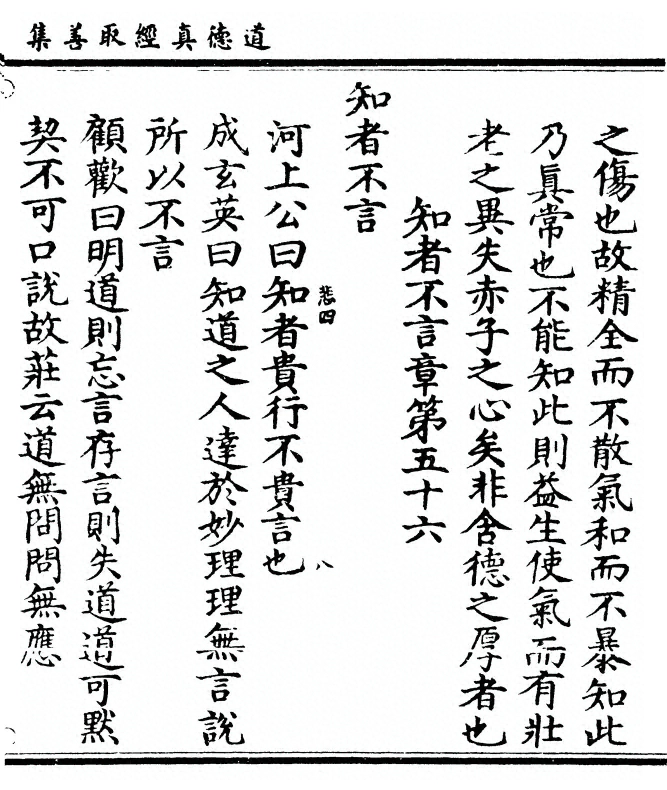 道德真經取善集
之傷也故精全而不散氣和而不暴知此
乃眞常也不能知此則益生使氣而有壯
老之異失赤子之心矣非含德之厚者也
知者不言章第五十六
知者不言
河上公曰知者貴行不貴言也
悲四
八
成玄英曰知道之人達於妙理理無言說
所以不言
顧歡曰明道則忘言存言則失道道可默
契不可口說故莊云道無問問無應